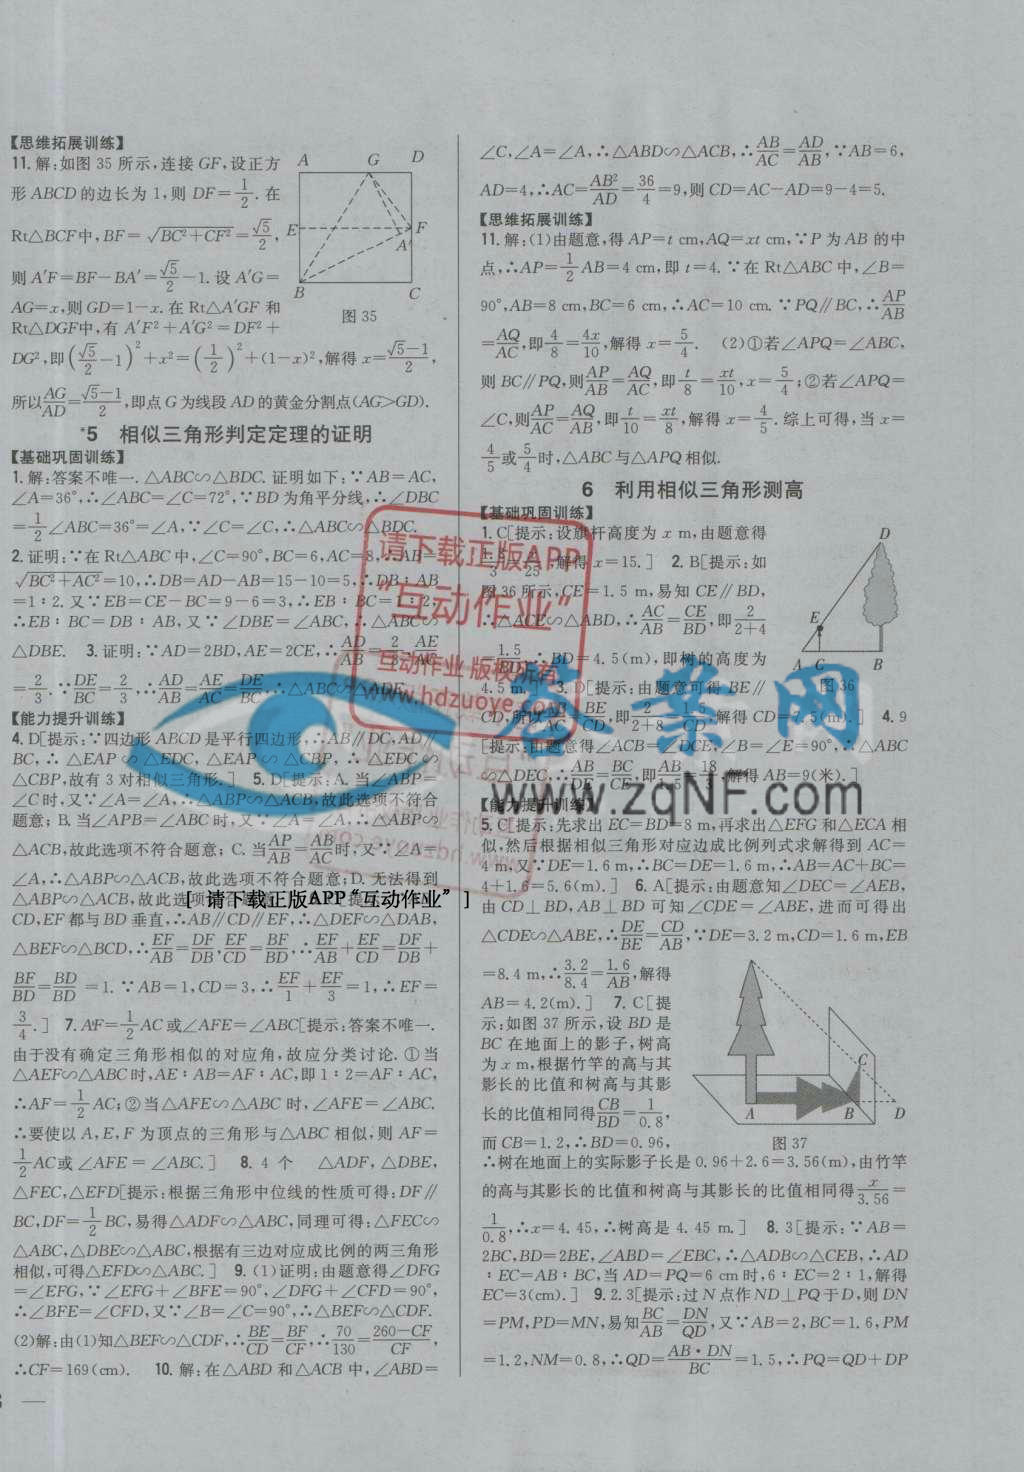 【思维拓展训练】
11.解:如图 35 所示,连接 GF,设正方
形 ABCD 的边长为 1,则 DF=1/2.在
Rt△BCF中,BF=√(BC²+CF²)=√5/2,
则 A′F=BF-BA′=√5/2-1.设 A′G=
AG=x,则GD=1-x.在 Rt△A′GF 和
Rt△DGF中,有 A′F²+A′G²=DF²+
DG²,即(√5/2-1)²+x²=(1/2)²+(1-x)²,解得 x=(√5-1)/2,
所以AG/AD=(√5-1)/2,即点 G 为线段 AD 的黄金分割点(AG>GD).
A G D
E F
A′
B C
图 35
*5 相似三角形判定定理的证明
【基础巩固训练】
1.解:答案不唯一.△ABC∽△BDC.证明如下:∵AB=AC,
∠A=36°,∴∠ABC=∠C=72°,∵BD 为角平分线,∴∠DBC
=1/2∠ABC=36°=∠A,∵∠C=∠C,∴△ABC∽△BDC.
2.证明:∵在 Rt△ABC 中,∠C=90°,BC=6,AC=8,∴AB=
√(BC²+AC²)=10,∴DB=AD-AB=15-10=5,∴DB∶AB
=1∶2.又∵EB=CE-BC=9-6=3,∴EB∶BC=1∶2,
∴EB∶BC=DB∶AB,又∵∠DBE=∠ABC,∴△ABC∽
△DBE. 3.证明:∵AD=2BD,AE=2CE,∴AD/AB=2/3,AE/AC
=2/3.∵DE/BC=2/3,∴AD/AB=AE/AC=DE/BC,∴△ABC∽△ADE.
【能力提升训练】
4.D[提示:∵四边形 ABCD 是平行四边形,∴AB∥DC,AD∥
BC,∴△EAP∽△EDC,△EAP∽△CBP,∴△EDC∽
△CBP,故有 3 对相似三角形.] 5.D[提示:A.当∠ABP=
∠C时,又∵∠A=∠A,∴△ABP∽△ACB,故此选项不符合
题意;B.当∠APB=∠ABC 时,又∵∠A=∠A,∴△ABP∽
△ACB,故此选项不符合题意;C.当AP/AB=AB/AC时,又∵∠A=
∠A,∴△ABP∽△ACB,故此选项不符合题意;D.无法得到
△ABP∽△ACB,故此选项符合题意.] 6.C[提示:∵AB,
CD,EF 都与 BD 垂直,∴AB∥CD∥EF,∴△DEF∽△DAB,
△BEF∽△BCD,∴EF/AB=DF/DB,EF/CD=BF/BD,∴EF/AB+EF/CD=DF/DB+
BF/BD=BD/BD=1.∵AB=1,CD=3,∴EF/1+EF/3=1,∴EF=
3/4.] 7.AF=1/2AC 或∠AFE=∠ABC[提示:答案不唯一.
由于没有确定三角形相似的对应角,故应分类讨论.①当
△AEF∽△ABC时,AE∶AB=AF∶AC,即1∶2=AF∶AC,
∴AF=1/2AC;②当△AFE∽△ABC 时,∠AFE=∠ABC.
∴要使以 A,E,F 为顶点的三角形与△ABC 相似,则 AF=
1/2AC或∠AFE=∠ABC.] 8.4 个 △ADF,△DBE,
△FEC,△EFD[提示:根据三角形中位线的性质可得:DF∥
BC,DF=1/2BC,易得△ADF∽△ABC,同理可得:△FEC∽
△ABC,△DBE∽△ABC,根据有三边对应成比例的两三角形
相似,可得△EFD∽△ABC.] 9.(1)证明:由题意得∠DFG
=∠EFG,∵∠EFG+∠BFE=90°,∠DFG+∠CFD=90°,
∴∠BFE=∠CFD,又∵∠B=∠C=90°,∴△BEF∽△CDF.
(2)解:由(1)知△BEF∽△CDF,∴BE/CD=BF/CF,∴70/130=(260-CF)/CF,
∴CF=169(cm). 10.解:在△ABD 和△ACB 中,∠ABD=
∠C,∠A=∠A,∴△ABD∽△ACB,∴AB/AC=AD/AB,∵AB=6,
AD=4,∴AC=AB²/AD=36/4=9,则 CD=AC-AD=9-4=5.
【思维拓展训练】
11.解:(1)由题意,得 AP=t cm,AQ=xt cm,∵P 为 AB 的中
点,∴AP=1/2AB=4 cm,即 t=4.∵在 Rt△ABC 中,∠B=
90°,AB=8 cm,BC=6 cm,∴AC=10 cm.∵PQ∥BC,∴AP/AB
=AQ/AC,即4/8=4x/10,解得 x=5/4. (2)①若∠APQ=∠ABC,
则 BC∥PQ,则AP/AB=AQ/AC,即t/8=xt/10,x=5/4;②若∠APQ=
∠C,则AP/AC=AQ/AB,即t/10=xt/8,解得 x=4/5.综上可得,当 x=
4/5或5/4时,△ABC 与△APQ 相似.
6 利用相似三角形测高
【基础巩固训练】
1.C[提示:设旗杆高度为 x m,由题意得
1.8/3=x/25,解得 x=15.] 2.B[提示:如
图 36 所示,CE=1.5 m,易知 CE∥BD,
∴△ACE∽△ABD,∴AC/AB=CE/BD,即2/(2+4)
=1.5/BD,∴BD=4.5(m),即树的高度为
4.5 m.] 3.D[提示:由题意可得 BE∥
CD,所以AB/AC=BE/CD,即2/(2+8)=1.5/CD,解得 CD=7.5(m).] 4.9
[提示:由题意得∠ACB=∠DCE,∠B=∠E=90°,∴△ABC
∽△DEC,∴AB/DE=BC/CE,即AB/1.5=18/3,解得 AB=9(米).]
D
E
A C B
图 36
【能力提升训练】
5.C[提示:先求出 EC=BD=8 m,再求出△EFG 和△ECA 相
似,然后根据相似三角形对应边成比例列式求解得到 AC=
4 m,又∵DE=1.6 m,∴BC=DE=1.6 m,∴AB=AC+BC=
4+1.6=5.6(m).] 6.A[提示:由题意知∠DEC=∠AEB,
由 CD⊥BD,AB⊥BD 可知∠CDE=∠ABE,进而可得出
△CDE∽△ABE,∴DE/BE=CD/AB,∵DE=3.2 m,CD=1.6 m,EB
=8.4 m,∴3.2/8.4=1.6/AB,解得
AB=4.2(m).] 7.C[提
示:如图 37 所示,设 BD 是
BC 在地面上的影子,树高
为 x m,根据竹竿的高与其
影长的比值和树高与其影
长的比值相同得CB/BD=1/0.8,
而 CB=1.2,∴BD=0.96,
C
A B D
图 37
∴树在地面上的实际影子长是 0.96+2.6=3.56(m),由竹竿
的高与其影长的比值和树高与其影长的比值相同得x/3.56=
1/0.8,∴x=4.45,∴树高是 4.45 m.] 8.3[提示:∵AB=
2BC,BD=2BE,∠ABD=∠EBC,∴△ADB∽△CEB,∴AD
∶EC=AB∶BC,当 AD=PQ=6 cm时,6∶EC=2∶1,解得
EC=3(cm).] 9.2.3[提示:过 N 点作 ND⊥PQ 于 D,则 DN
=PM,PD=MN,易知BC/AB=DN/QD,又∵AB=2,BC=1.6,PM
=1.2,NM=0.8,∴QD=AB·DN/BC=1.5,∴PQ=QD+DP
请下载正版APP
“互动作业”
互动作业 版权所有
www.hdzuoye.com
[ 请下载正版APP“互动作业” ]
答案网
www.zqNF.com